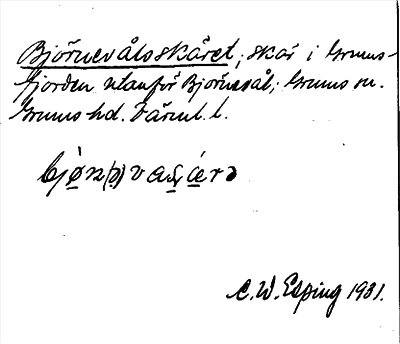 Björnevålsskäret, skär i Grums-
fjorden utanför Björnevål; Grums sn.
Grums hd. Värml. l.
bjö̀n(ə)vaʂǽrə
C. W. Esping 1931.